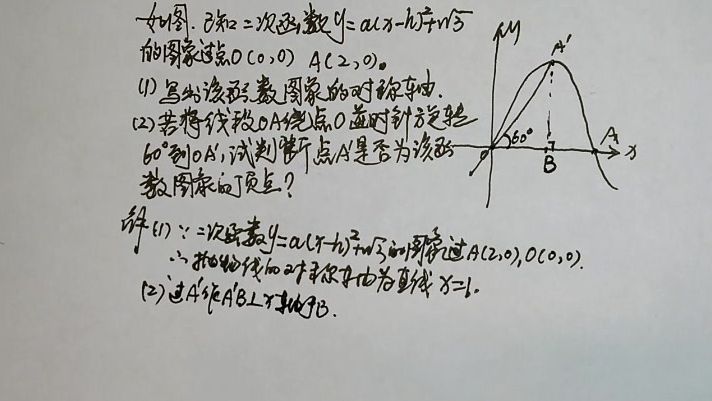 如图.已知二次函数y=a(x-h)²+√3
的图象过点O(0,0) A(2,0)。
(1)写出该函数图象的对称轴.
(2)若将线段OA绕点O逆时针旋转
60°到OA',试判断点A'是否为该函
数图象的顶点?
y
A'
60°
O
B
A
x
解(1)∵二次函数y=a(x-h)²+√3的图象过A(2,0),O(0,0).
∴抛物线的对称轴为直线x=1.
(2)过A'作A'B⊥x轴于B.